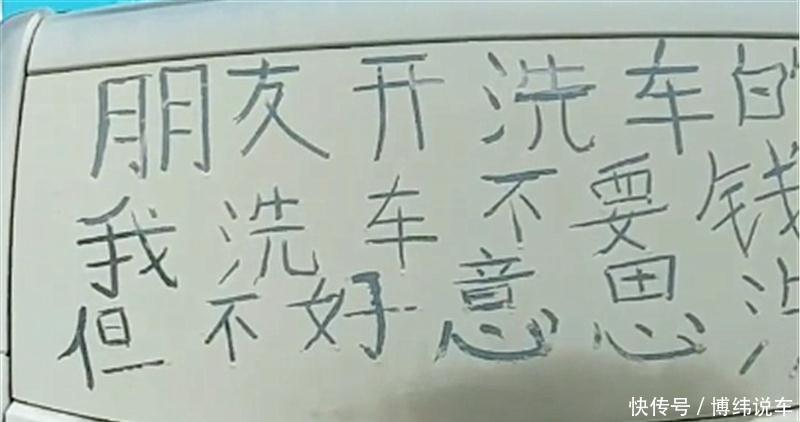 朋友开洗车的
我洗车不要钱
但不好意思
快传号/博纬说车